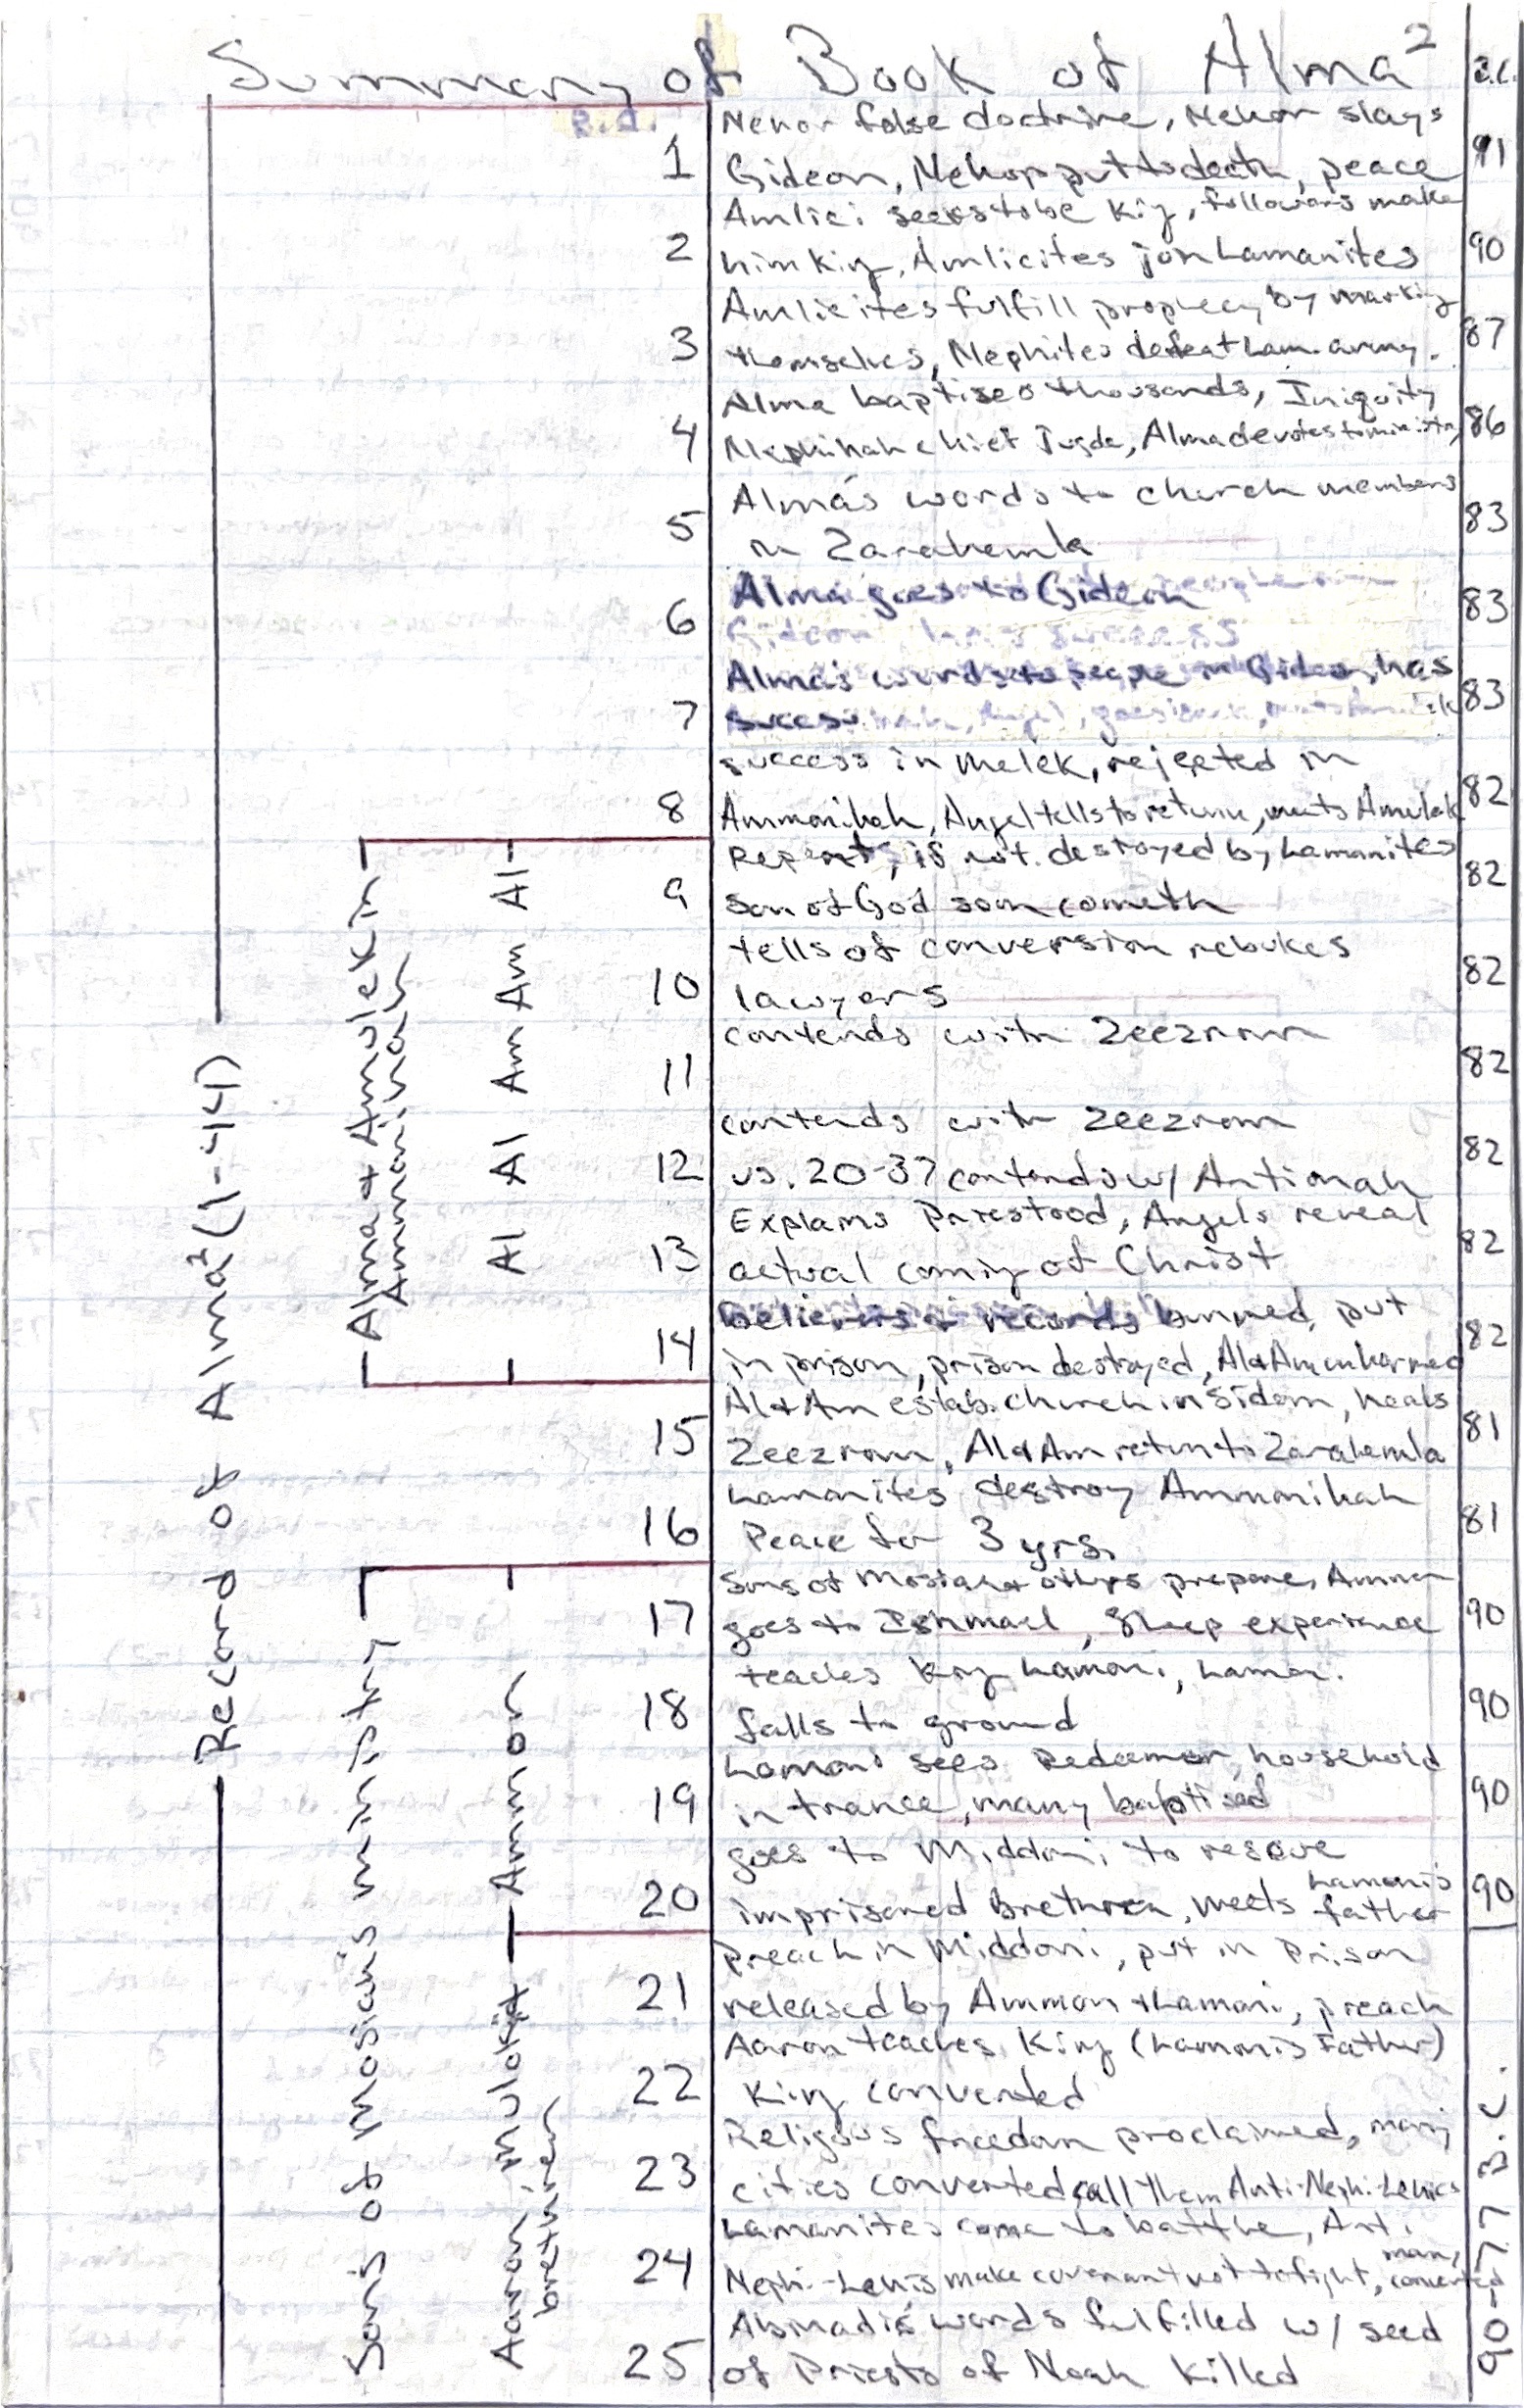 Summary of Book of Alma² B.C.
Nehor false doctrine, Nehor slays
1 Gideon, Nehor put to death, peace 91
Amlici seeks to be King, followers make
2 him King, Amlicites join Lamanites 90
Amlicites fulfill prophecy by marking
3 themselves, Nephites defeat Lam. army. 87
Alma baptises thousands, Iniquity
4 Nephihah chief Jugde, Alma devotes to ministry 86
Alma's words to church members
5 in Zarahemla 83
Alma goes to Gideon
6 83
Alma's words to people in Gideon, has
7 success 83
success in Melek, rejected in
8 Ammonihah, Angel tells to return, meets Amulek 82
Repent, if not destroyed by Lamanites
9 Son of God soon cometh 82
tells of conversion rebukes
10 lawyers 82
contends with Zeezrom
11 82
contends with Zeezrom
12 vs. 20-37 contends w/ Antionah 82
Explains Priestood, Angels reveal
13 actual coming of Christ 82
Believers & records burned, put
14 in prison, prison destroyed, Al & Am unharmed 82
Al & Am estab. church in Sidom, heals
15 Zeezrom, Al & Am return to Zarahemla 81
Lamanites destroy Ammonihah
16 Peace for 3 yrs. 81
Sons of Mosiah & others prepare, Ammon
17 goes to Ishmael, Sheep experience 90
teaches King Lamoni, Lamoni
18 falls to ground 90
Lamoni sees Redeemer, household
19 in trance, many baptised 90
goes to Middoni to rescue
20 imprisoned Brethren, meets Lamoni's father 90
Preach in Middoni, put in Prison
21 released by Ammon & Lamoni, preach
Aaron teaches King (Lamoni's Father)
22 King converted
Religous freedom proclaimed, many
23 cities converted, call them Anti-Nephi-Lehies
Lamanites come to battle, Anti
24 Nephi-Lehis make covenant not to fight, many converted
Abinadi's words fulfilled w/ seed
25 of Priests of Noah Killed
90-77 B.C.
Record of Alma² (1-44)
Alma & Amulek in
Ammonihah
Al Al Am Am Al
Al
Sons of Mosiah's ministry
Ammon
Aaron Muloki &
brethren